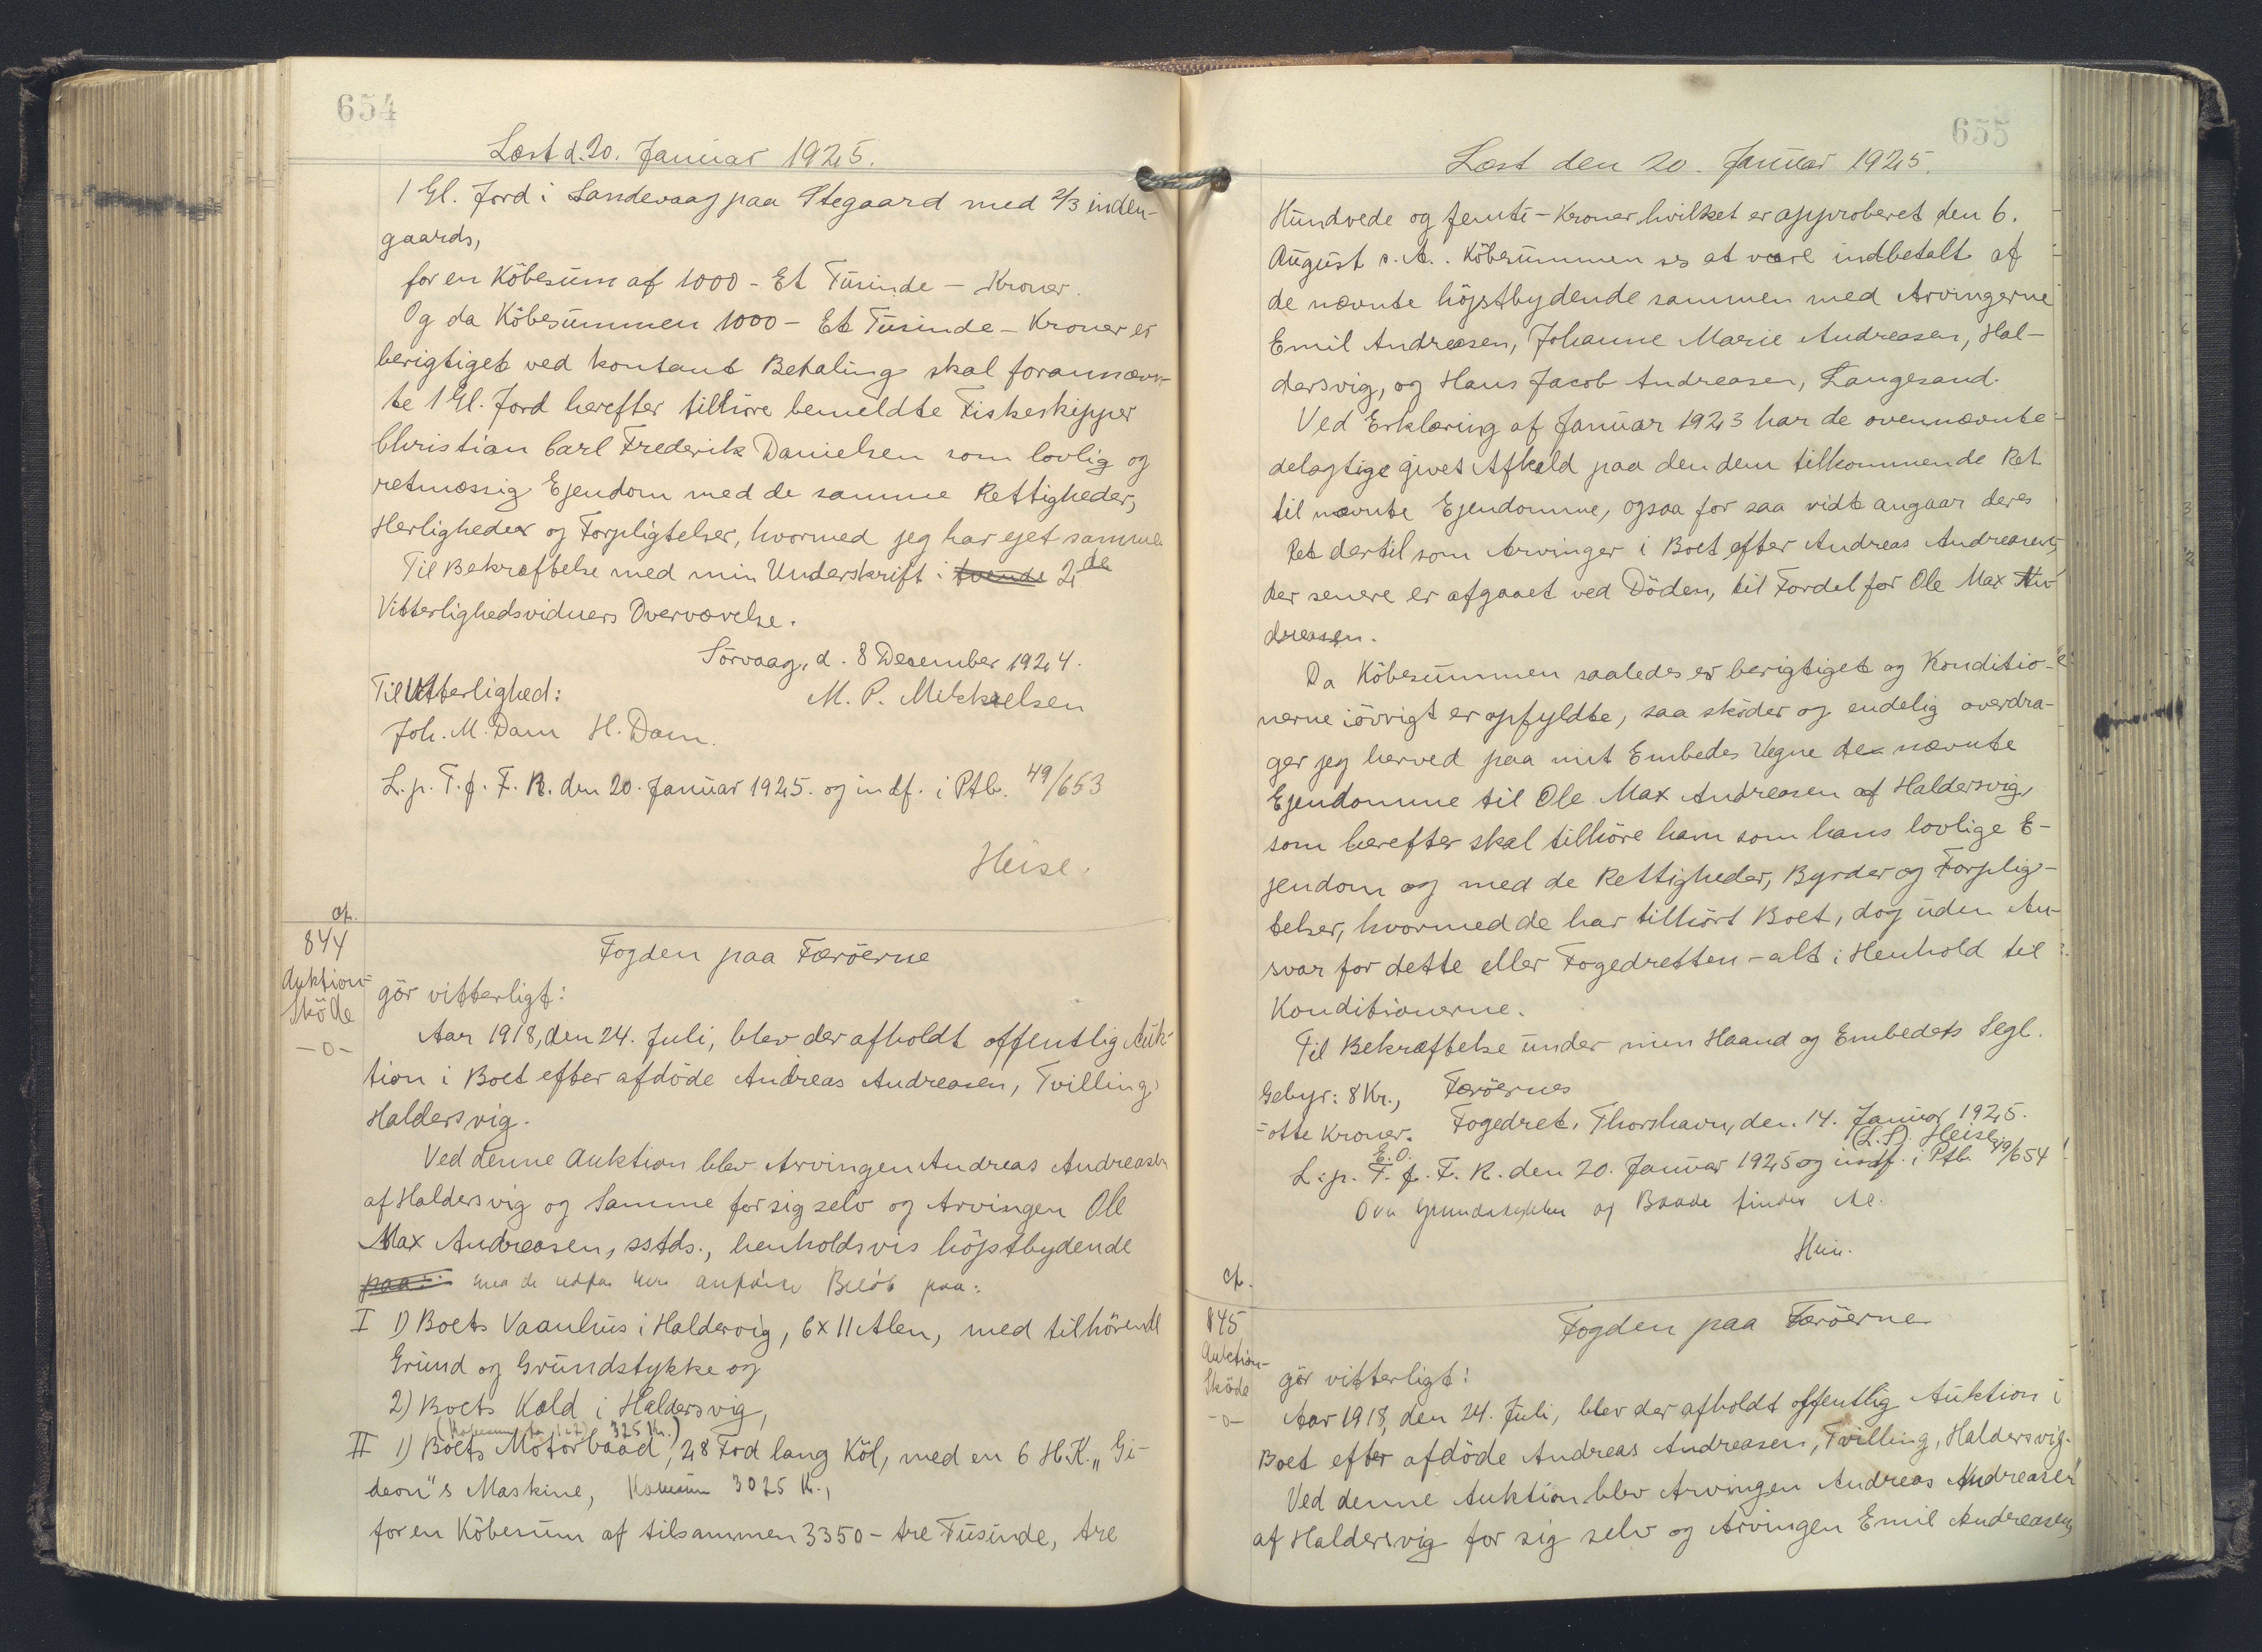 654
Læst d. 20. Januar 1925.
1 Gl. Jord i Sandevaag paa Stegaard med 2/3 inden-
gaards,
for en Köbesum af 1000 - Et Tusinde - Kroner.
Og da Köbesummen 1000 - Et Tusinde - Kroner er
berigtiget ved kontant Betaling skal forannævn-
te 1 Gl. Jord herefter tilhöre bemeldte Fiskeskipper
Christian Carl Frederik Danielsen som lovlig og
retmæssig Ejendom med de samme Rettigheder,
Herligheder og Forpligtelser, hvormed jeg har ejet samme.
Til Bekræftelse med min Underskrift i tvende 2de
Vitterlighedsvidners Overværelse.
Sörvaag, d. 8 December 1924.
Til Vitterlighed:
M. P. Mikkelsen
Joh. M. Dam H. Dam.
L. p. T. f. F. R. den 20. Januar 1925. og indf. i Ptb. 49/653
Heise.
cf.
844
Auktion-
Sköde
-0-
Fogden paa Færöerne
gör vitterligt:
Aar 1918, den 24. Juli, blev der afholdt offentlig Auk-
tion i Boet efter afdöde Andreas Andreasen, Tvilling,
Haldersvig.
Ved denne Auktion blev Arvingen Andreas Andreasen
af Haldersvig og Samme for sig selv og Arvingen Ole
Max Andreasen, sstds., henholdsvis höjstbydende
paa: med de udfor hver anförte Belöb paa:
I 1) Boets Vaanhus i Haldersvig, 6 x 11 Alen, med tilhörende
Grund og Grundstykke og
2) Boets Kald i Haldersvig,
(Köbesum for 1 & 2) 325 Kr.)
II 1) Boets Motorbaad, 28 Fod lang Köl, med en 6 H.K. "Gi-
deon"s Maskine, Köbesum 3025 Kr.,
for en Köbesum af tilsammen 3350 - tre Tusinde, tre
655
Læst den 20. Januar 1925.
Hundrede og femti - Kroner hvilket er approberet den 6.
August s. A. Köbesummen ses at være indbetalt af
de nævnte höjstbydende sammen med Arvingerne
Emil Andreasen, Johanne Marie Andreasen, Hal-
dersvig, og Hans Jacob Andreasen, Langesand.
Ved Erklæring af Januar 1923 har de ovennævnte
delagtige givet Afkald paa den dem tilkommende Ret
til nævnte Ejendomme, ogsaa for saa vidt angaar deres
Ret dertil som Arvinger i Boet efter Andreas Andreasen,
der senere er afgaaet ved Döden, til Fordel for Ole Max An-
dreasen.
Da Köbesummen saaledes er berigtiget og Konditio-
nerne iövrigt er opfyldte, saa sköder og endelig overdra-
ger jeg herved paa mit Embedes Vegne de nævnte
Ejendomme til Ole Max Andreasen af Haldersvig,
som herefter skal tilhöre ham som hans lovlige E-
jendom og med de Rettigheder, Byrder og Forplig-
telser, hvormed de har tilhört Boet, dog uden An-
svar for dette eller Fogedretten - alt i Henhold til
Konditionerne.
Til Bekræftelse under min Haand og Embedets Segl.
Gebyr: 8 Kr., Færöernes
- otte Kroner. Fogedret, Thorshavn, den 14. Januar 1925.
(L.S). Heise.
E.O.
L. p. T. f. F. R. den 20. Januar 1925 og indf. i Ptb. 49/654
Om Grundstykker og Baade findes Ae.
Heise.
cf.
845
Auktion-
Sköde
-0-
Fogden paa Færöerne
gör vitterligt:
Aar 1918, den 24. Juli, blev der afholdt offentlig Auktion i
Boet efter afdöde Andreas Andreasen, Tvilling, Haldersvig.
Ved denne Auktion blev Arvingen Andreas Andreasen
af Haldersvig for sig selv og Arvingen Emil Andreasen,